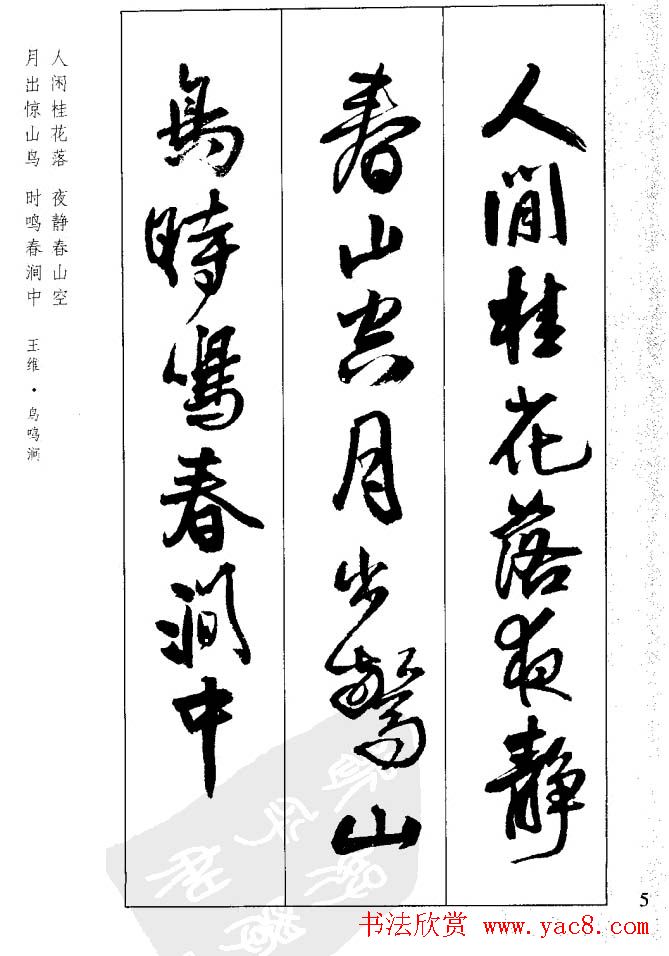 人閒桂花落夜静
春山空月出驚山
鳥時鳴春澗中
人闲桂花落 夜静春山空
月出惊山鸟 时鸣春涧中 王维·鸟鸣涧
5
书法欣赏 www.yac8.com